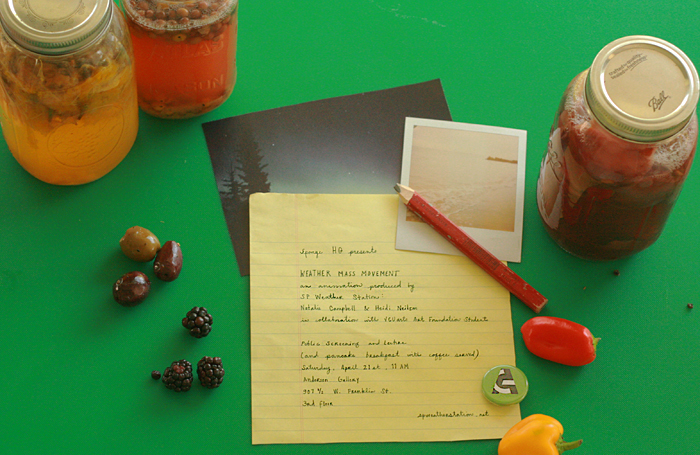 Sponge HQ presents
WEATHER MASS MOVEMENT
an innovation produced by
SP Weather Station:
Natalie Campbell & Heidi Neilson
in collaboration with VCUarts Art Foundation Students
Public Screening and Lecture
(and pancake breakfast with coffee served)
Saturday, April 21st, 11 AM
Anderson Gallery
907 ½ W. Franklin St.
3rd floor
spweatherstation.net
Ball